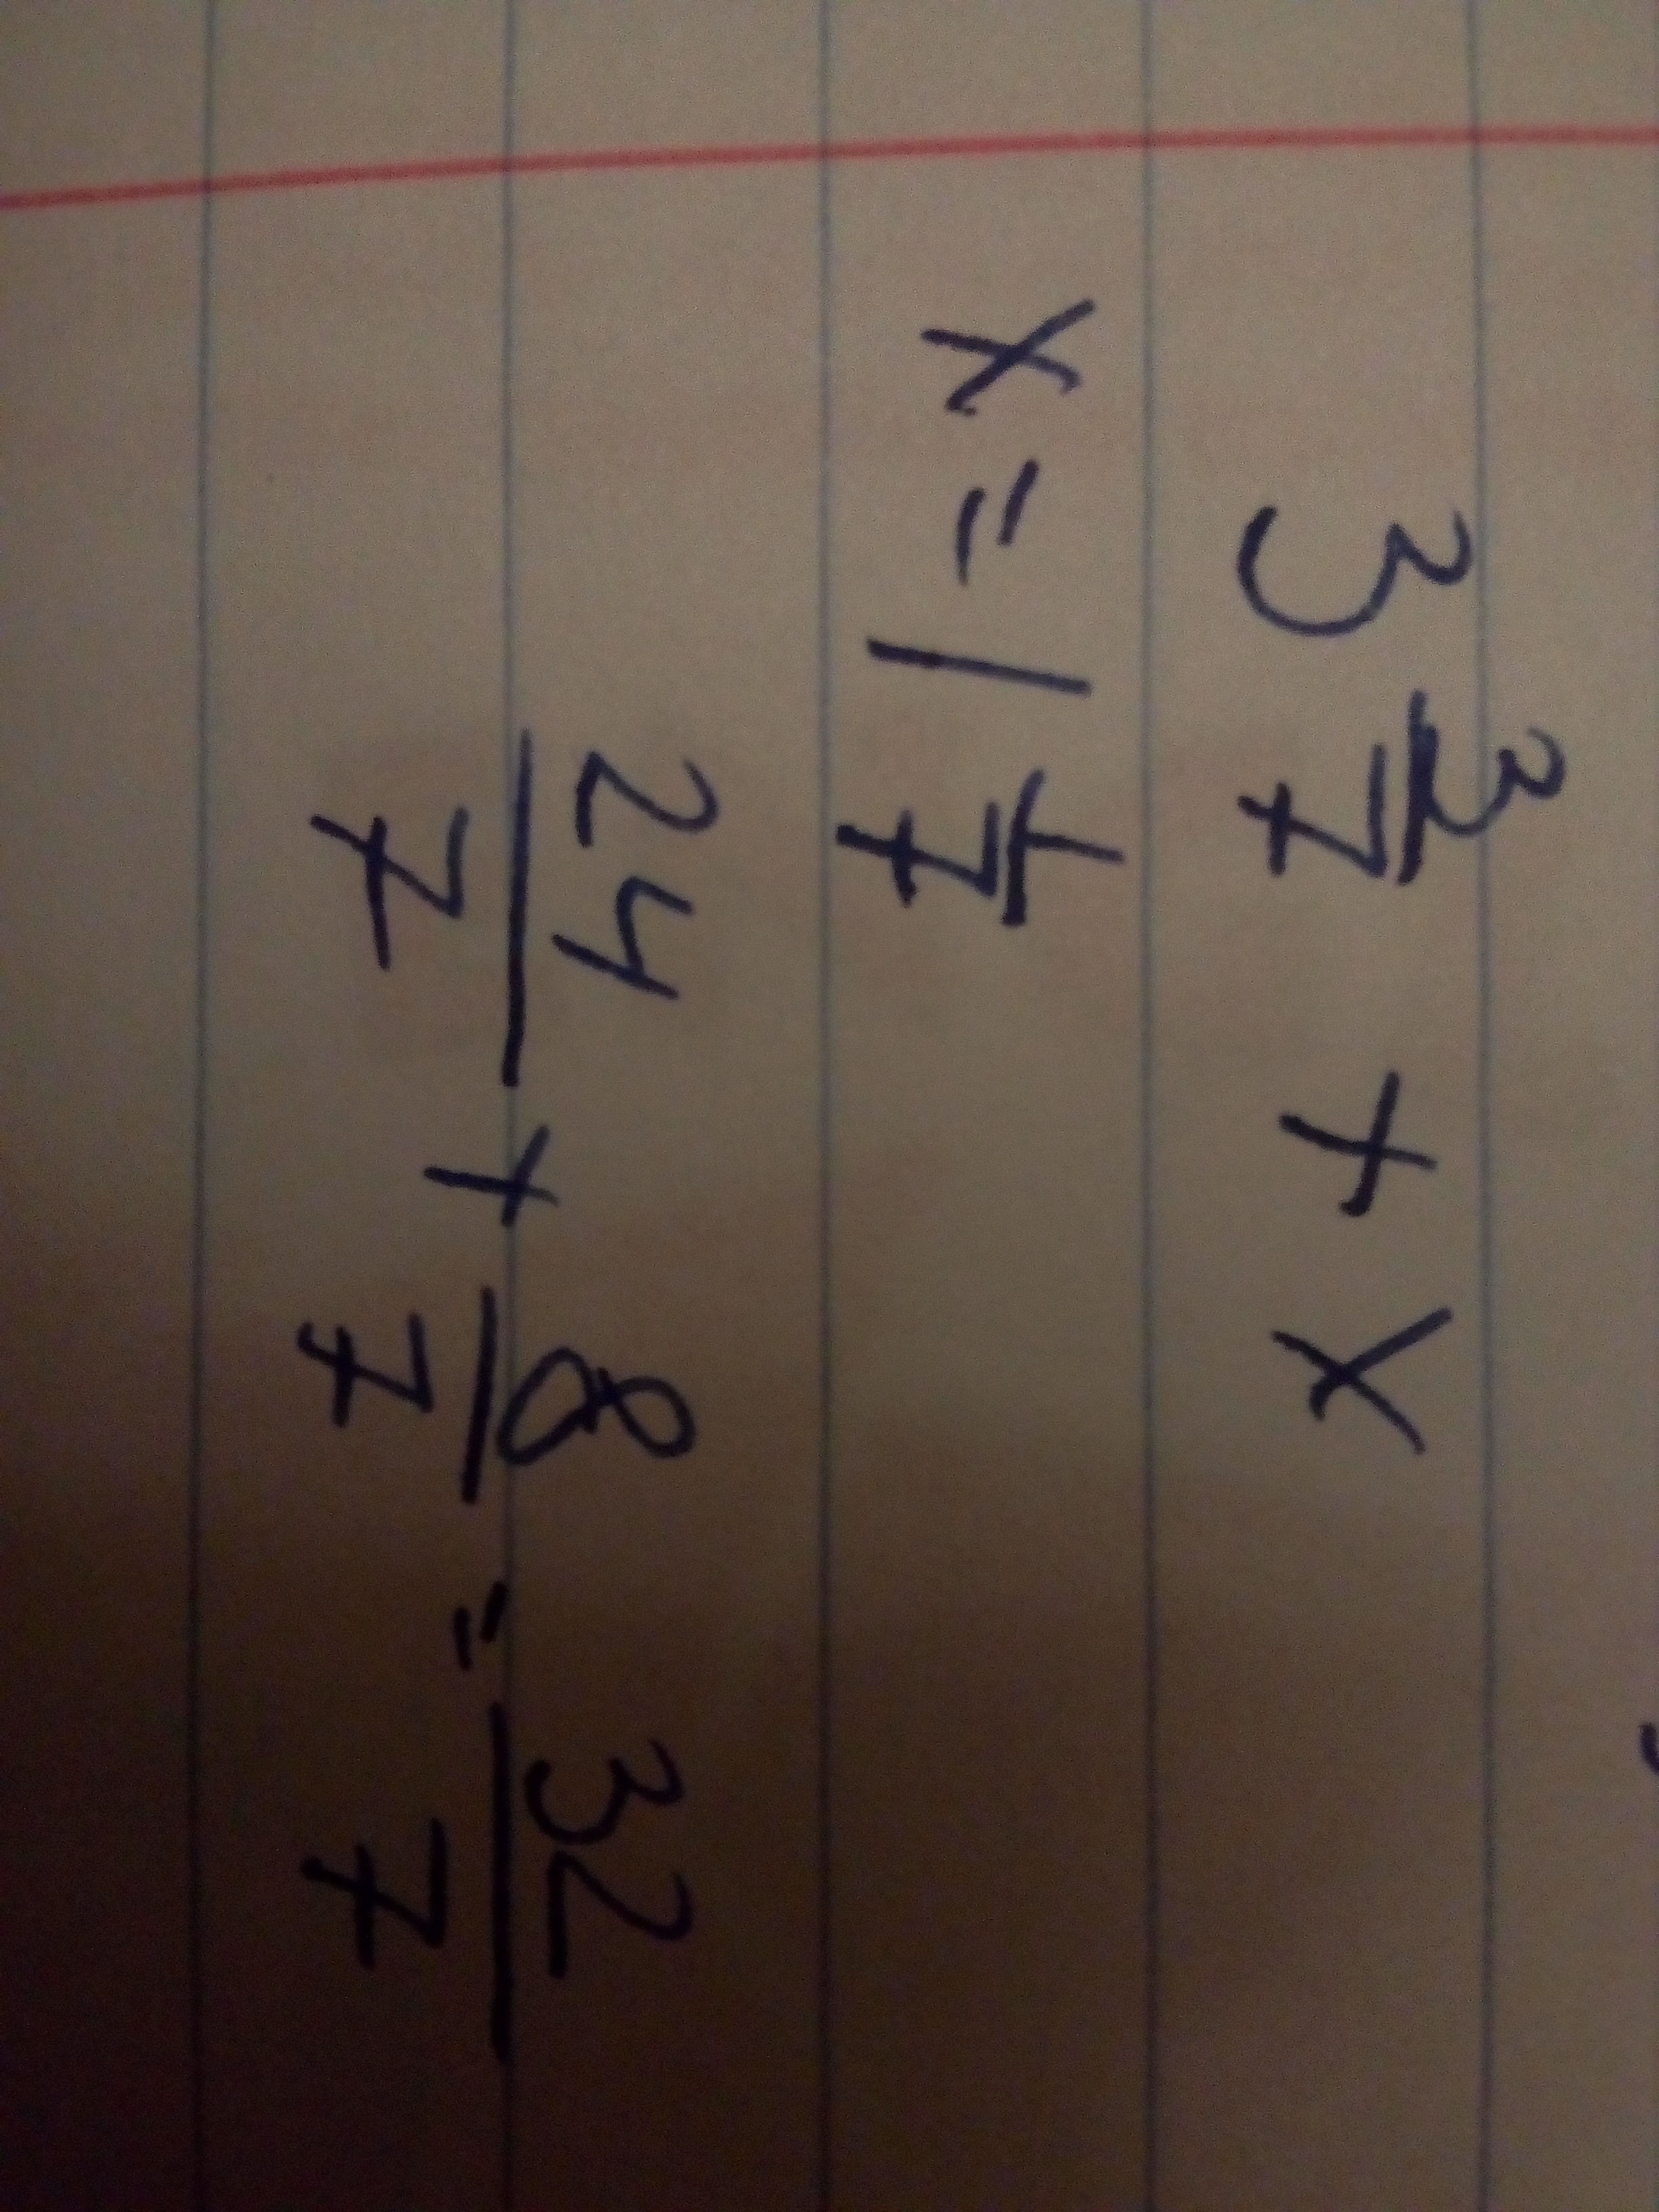 3 3/7 + x
x = 1 1/7
24/7 + 8/7 = 32/7